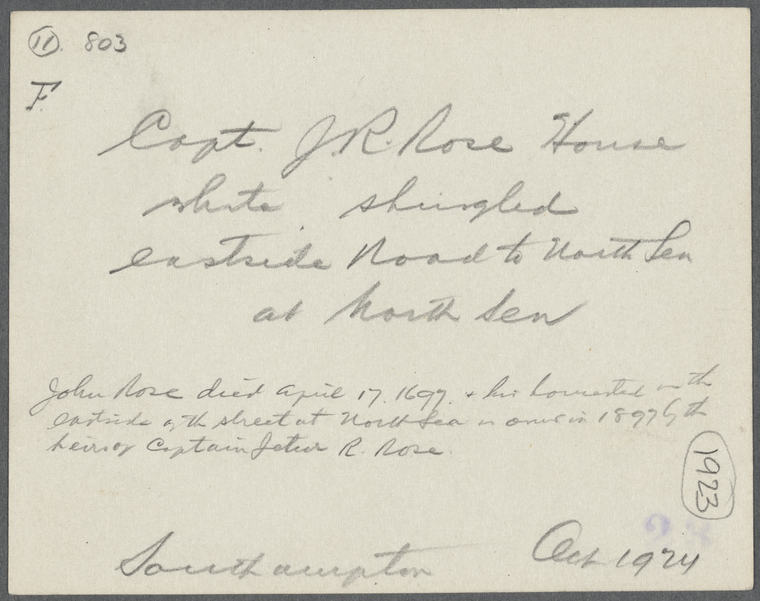 11. 803
F.
Capt. J.R. Rose House
white shingled
eastside Road to North Sea
at North Sea
John Rose died April 17. 1697. & his homestead on the
eastside of the street at North Sea is owned in 1897 by the
heirs of Captain Jetur R. Rose.
1923
Southampton Oct 1924